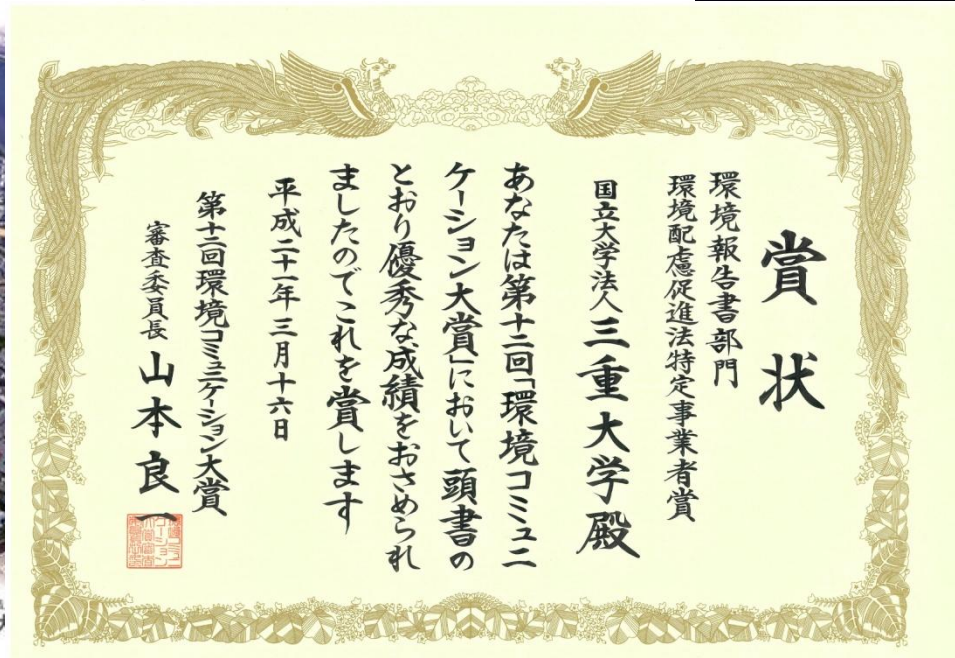 賞状
環境報告書部門
環境配慮促進法特定事業者賞
国立大学法人三重大学殿
あなたは第十二回「環境コミュニ
ケーション大賞」において頭書の
とおり優秀な成績をおさめられ
ましたのでこれを賞します
平成二十一年三月十六日
第十二回環境コミュニケーション大賞
審査委員長 山本良一